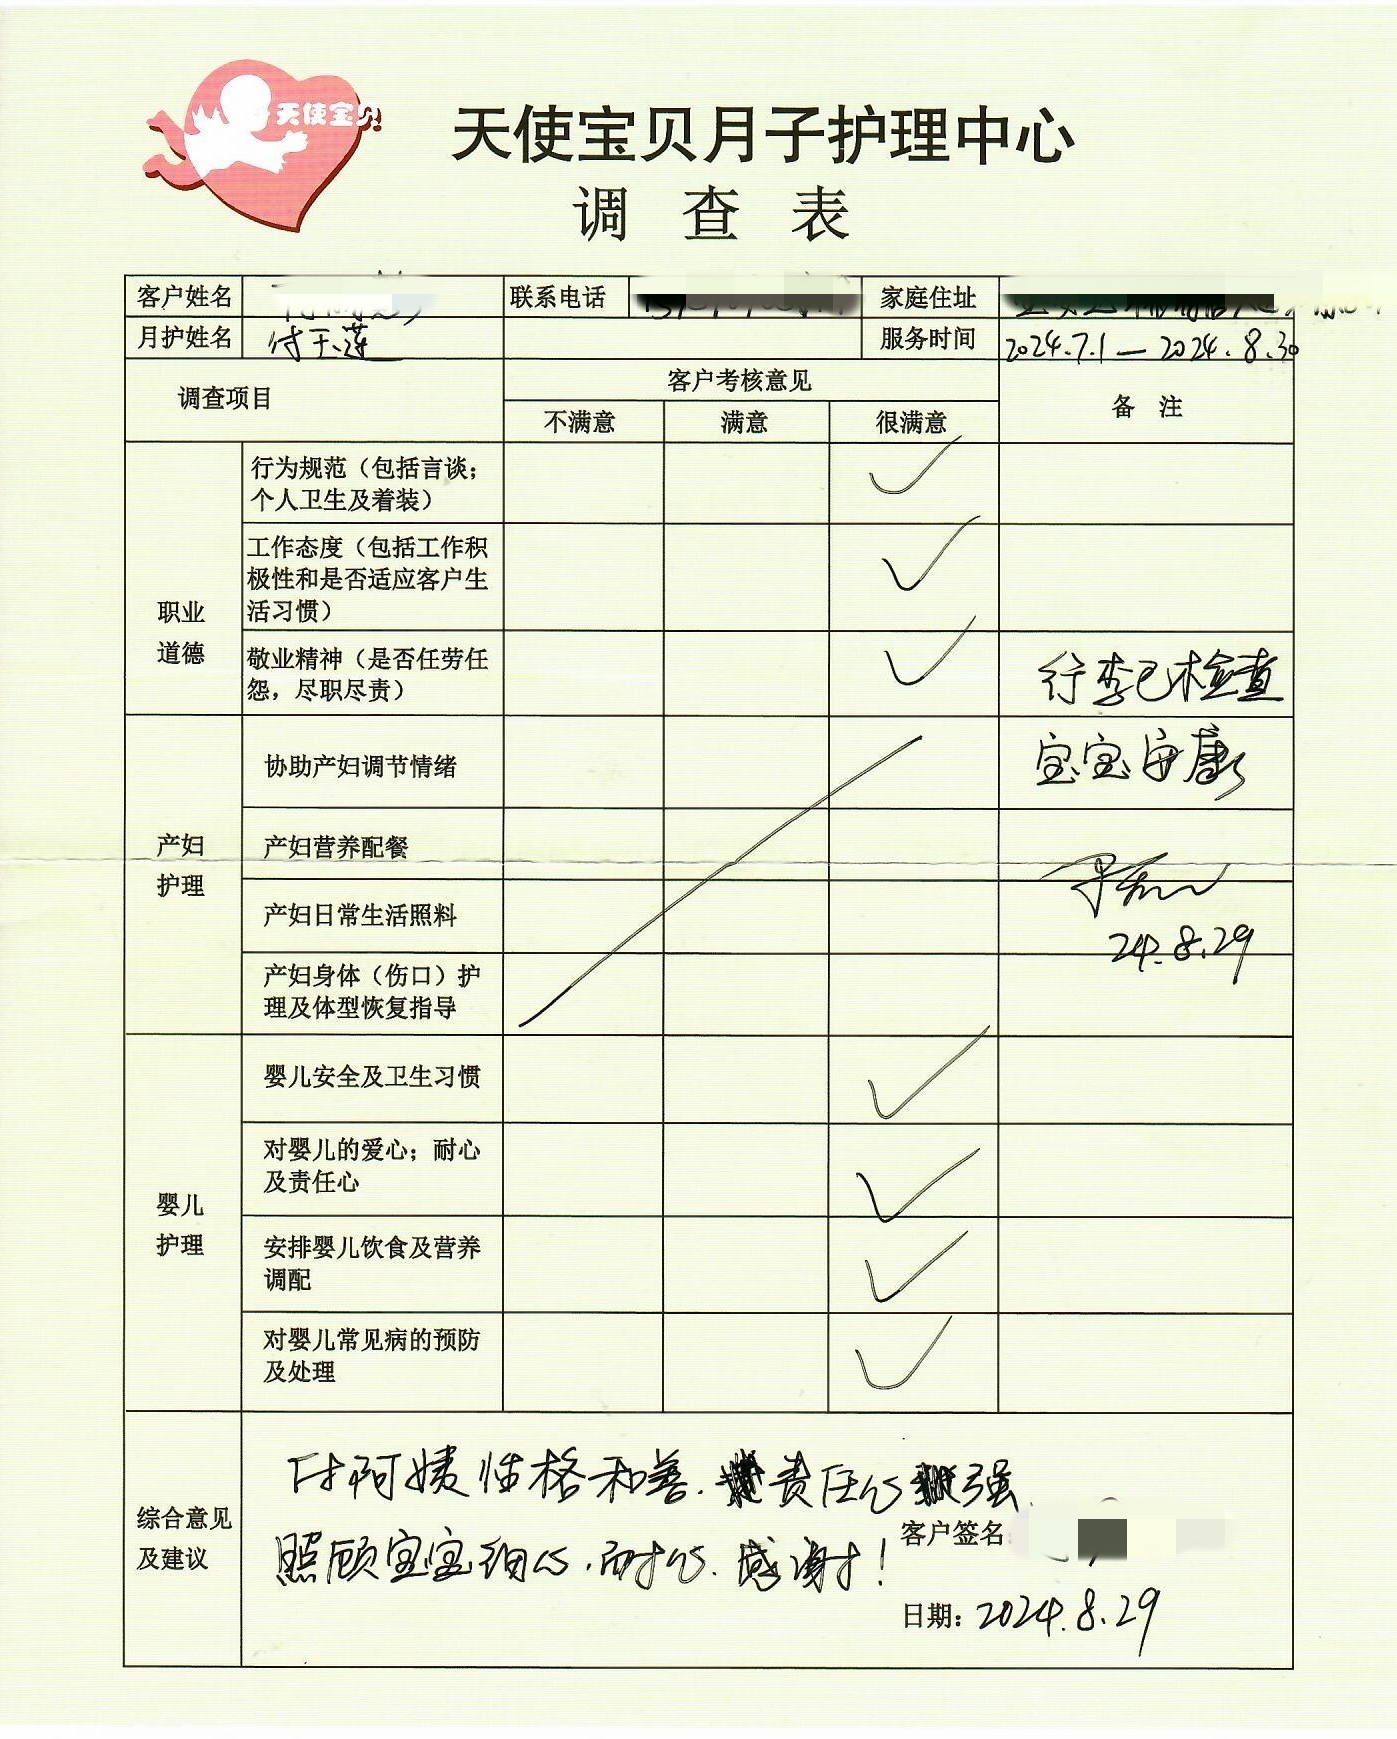 天使宝贝
天使宝贝月子护理中心
调 查 表
客户姓名 联系电话 家庭住址
月护姓名 付玉莲 服务时间 2024.7.1—2024.8.30
调查项目 客户考核意见 备 注
不满意 满意 很满意
职业
道德
行为规范（包括言谈；
个人卫生及着装）
工作态度（包括工作积
极性和是否适应客户生
活习惯）
敬业精神（是否任劳任
怨，尽职尽责）
行李已检查
宝宝安康
24.8.29
产妇
护理
协助产妇调节情绪
产妇营养配餐
产妇日常生活照料
产妇身体（伤口）护
理及体型恢复指导
婴儿
护理
婴儿安全及卫生习惯
对婴儿的爱心；耐心
及责任心
安排婴儿饮食及营养
调配
对婴儿常见病的预防
及处理
综合意见
及建议
付阿姨性格和善.责任心强
照顾宝宝细心.耐心.感谢!
客户签名
日期: 2024.8.29